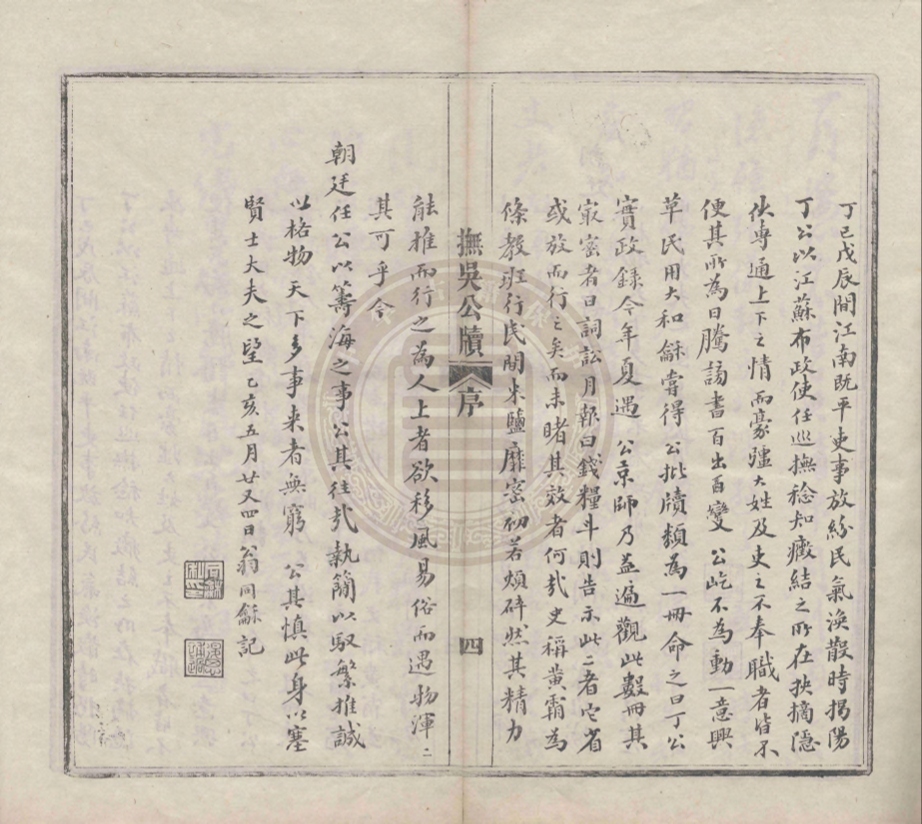 丁巳戊辰間江南既平吏事放紛民氣渙散時揭陽
丁公以江蘇布政使任巡撫稔知癥結之所在抉摘隱
伏專通上下之情而豪彊大姓及吏之不奉職者皆不
便其所為日騰謗書百出百變 公屹不為動一意興
革民用大和龢嘗得 公批牘纇為一冊命之曰丁公
實政錄今年夏遇 公京師乃益遍觀此數冊其
最密者曰詞訟月報曰錢糧斗則告示此二者它省
或放而行之矣而未睹其效者何哉史稱黃霸為
條教班行民間米鹽靡密初若煩碎然其精力
撫吳公牘 序 四
能推而行之為人上者欲移風易俗而遇物渾二
其可乎今
朝廷任公以籌海之事公其往哉執簡以馭繁推誠
以格物天下多事来者無窮 公其慎此身以塞
賢士大夫之望乙亥五月廿又四日翁同龢記